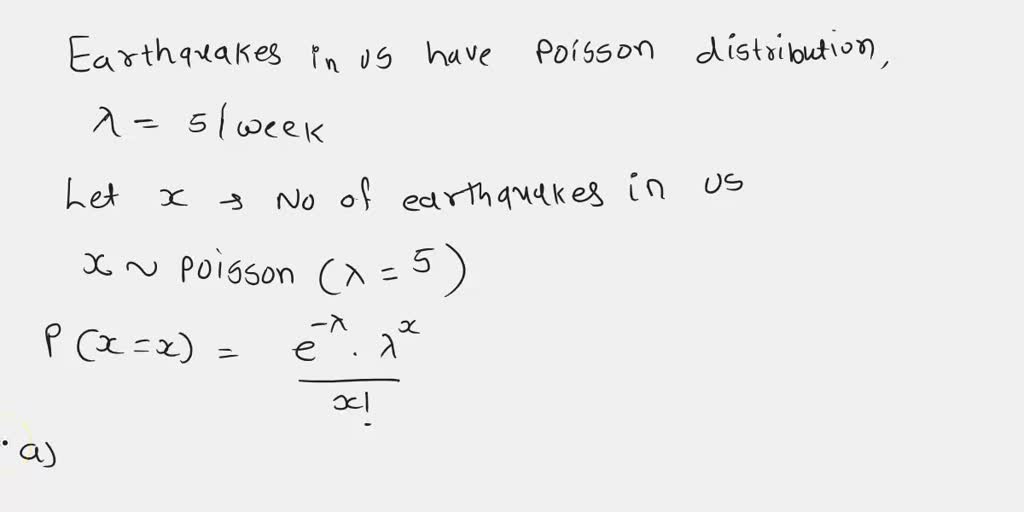 Earthquakes in US have Poisson distribution,
λ = 5/week
Let x → No of earthquakes in US
x ~ Poisson (λ = 5)
P(x = x) = e^{-λ} · λ^x / x!
a)